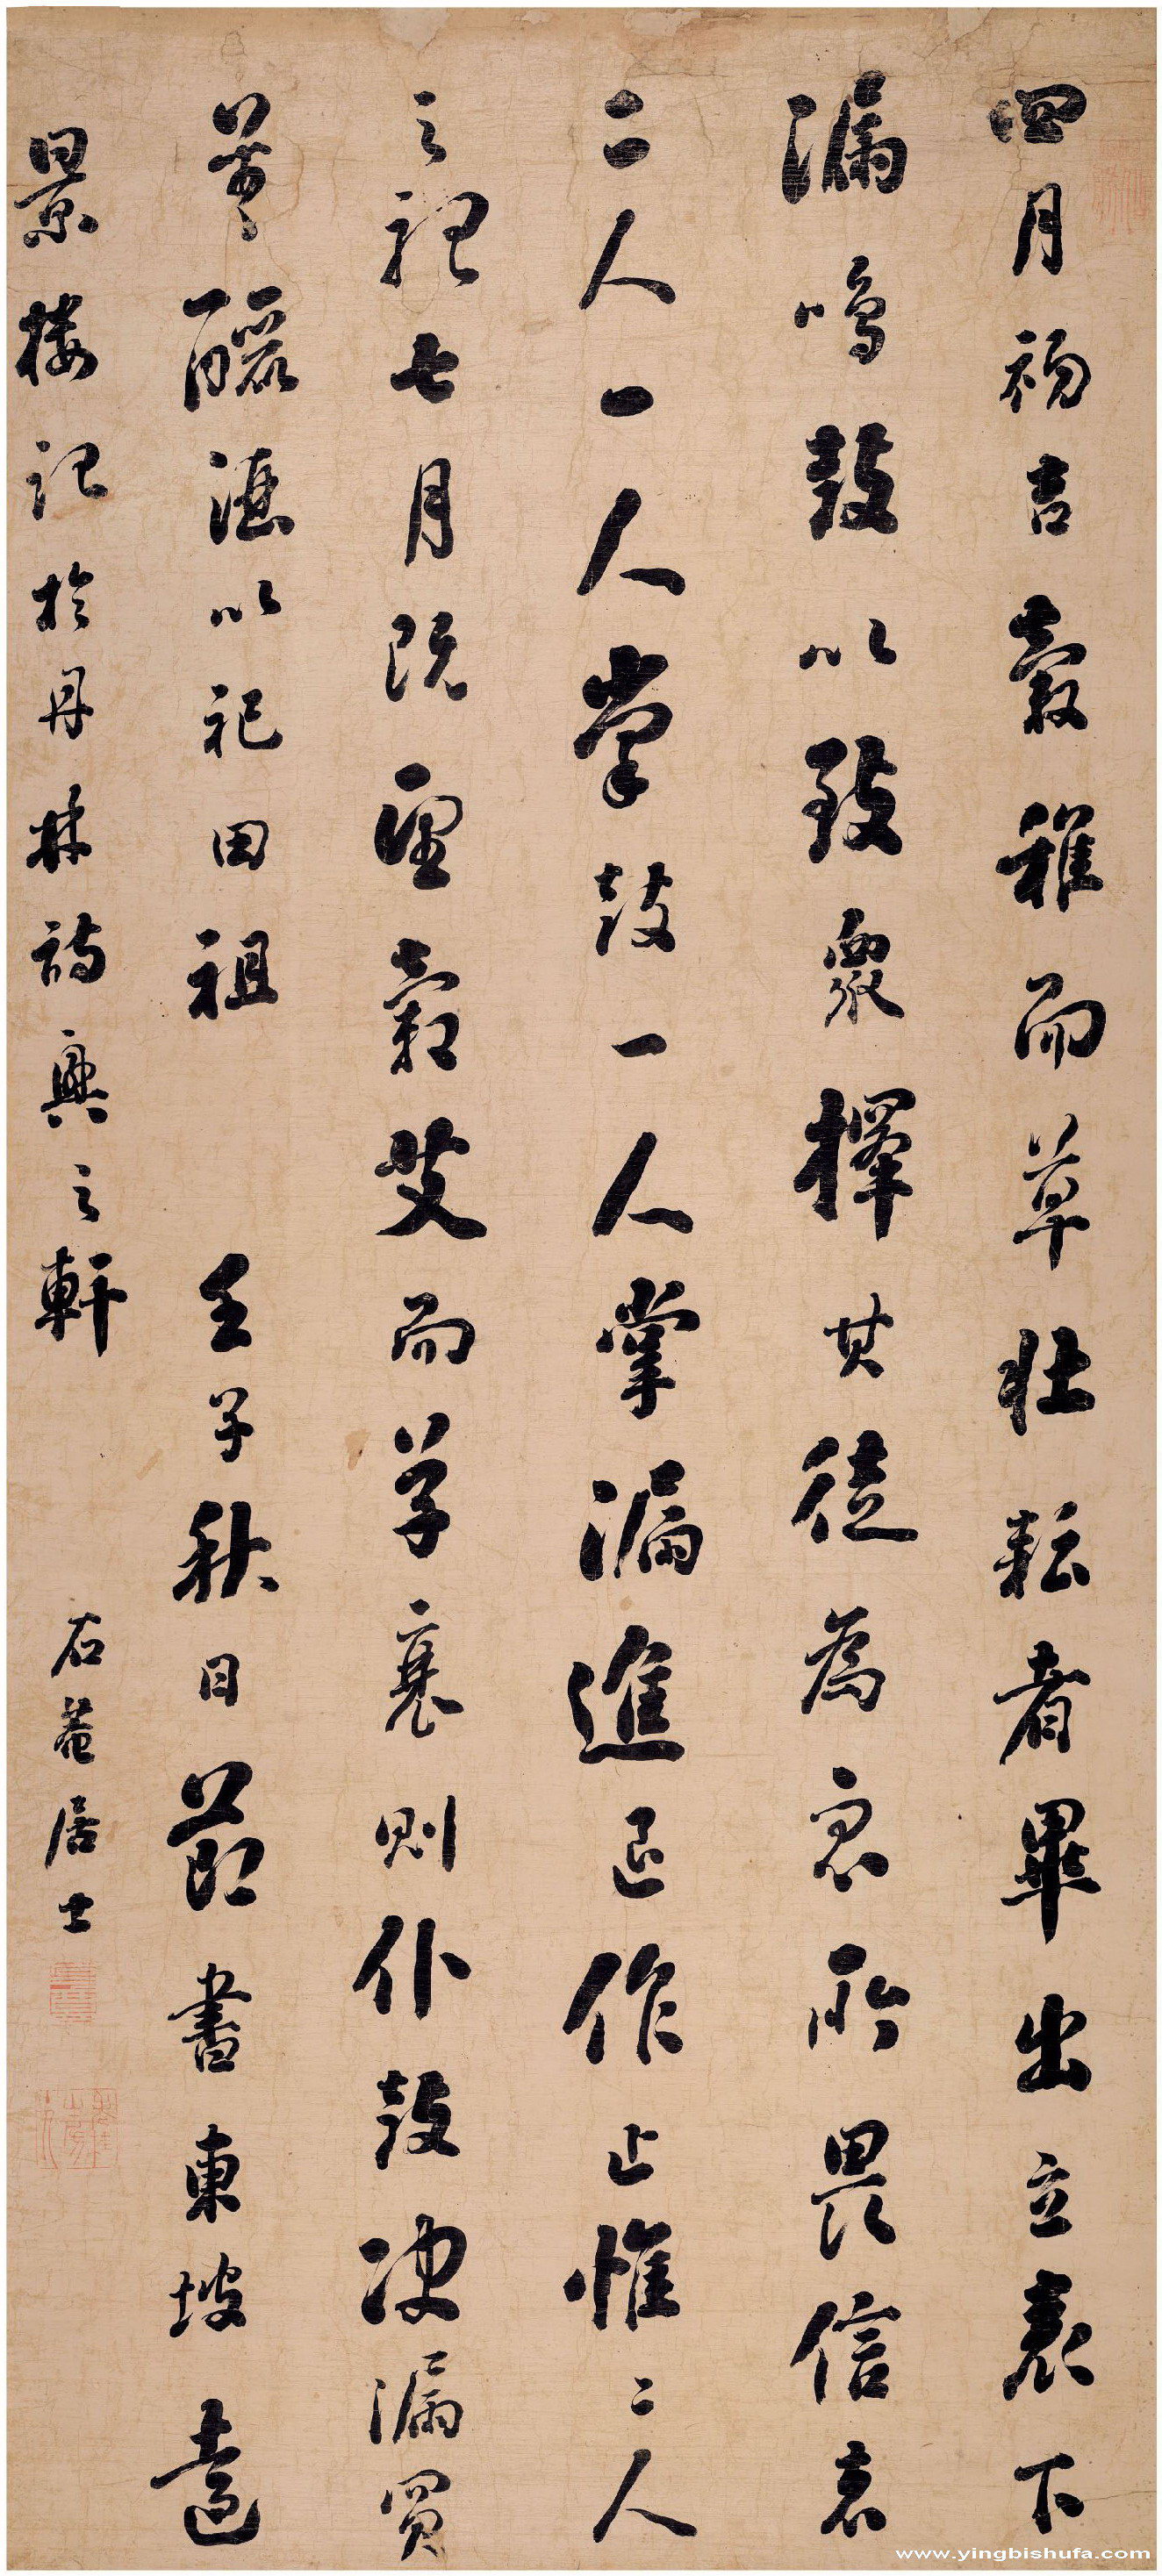 四月初吉穀稚而草壯耘者畢出立表下
漏鳴鼓以致衆擇其徒為衆所畏信者
二人一人掌鼓一人掌漏進退作止惟二人
之視七月既望穀艾而草衰則仆鼓決漏買
羊釃酒以祀田祖 壬子秋日節書東坡遠
景樓記於丹林詩興之軒 石菴居士
www.yingbishufa.com